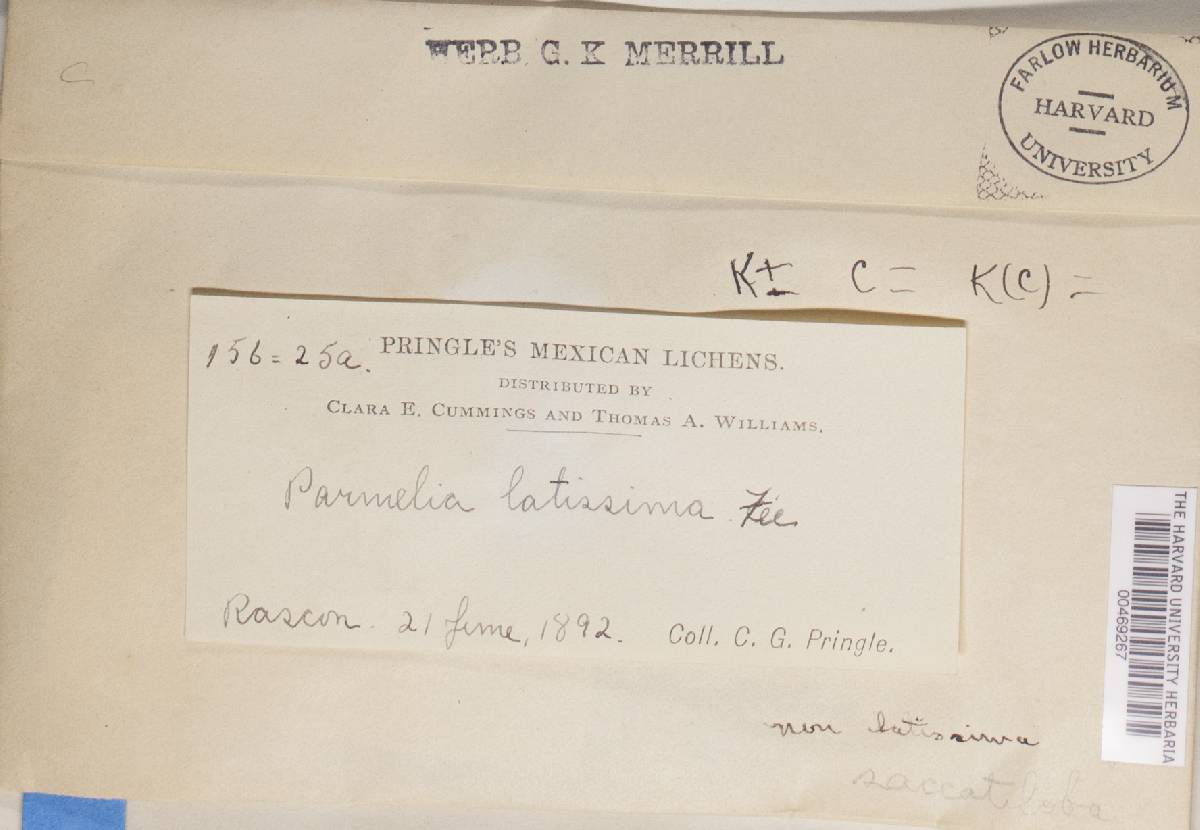 HERB. G. K MERRILL
C
FARLOW HERBARIUM
HARVARD
UNIVERSITY
K± C = K(C) =
156=25a. PRINGLE'S MEXICAN LICHENS.
DISTRIBUTED BY
CLARA E. CUMMINGS AND THOMAS A. WILLIAMS.
Parmelia latissima Fée
Rascon. 21 June, 1892. Coll. C. G. Pringle.
non latissima
saccatiloba
THE HARVARD UNIVERSITY HERBARIA
00469267